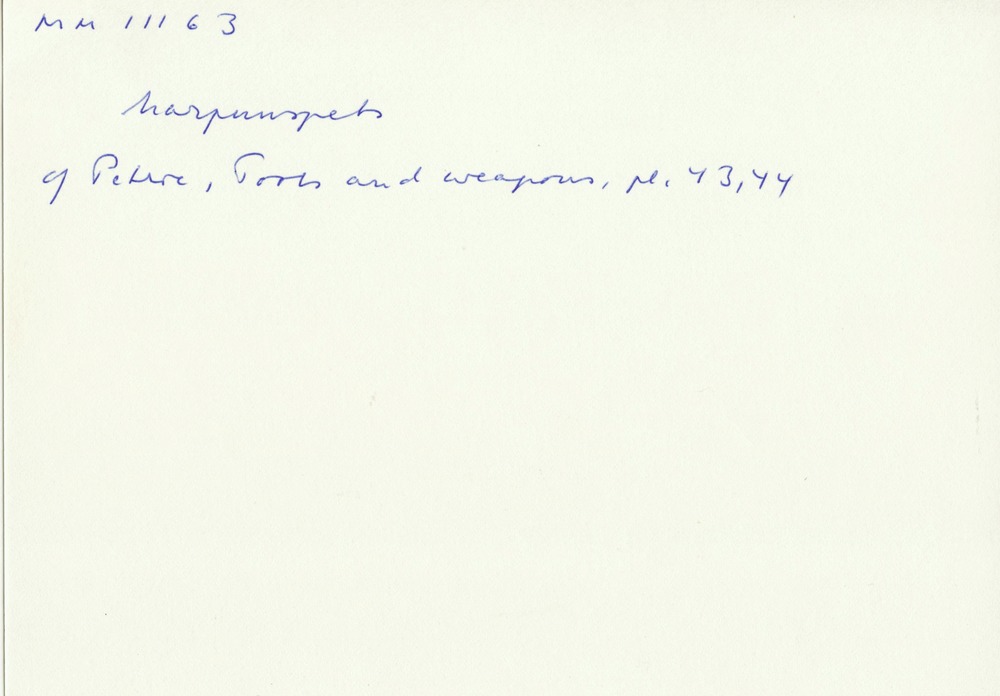 MM 11163
harpunspets
cf Petrie, Tools and weapons, pl. 43,44